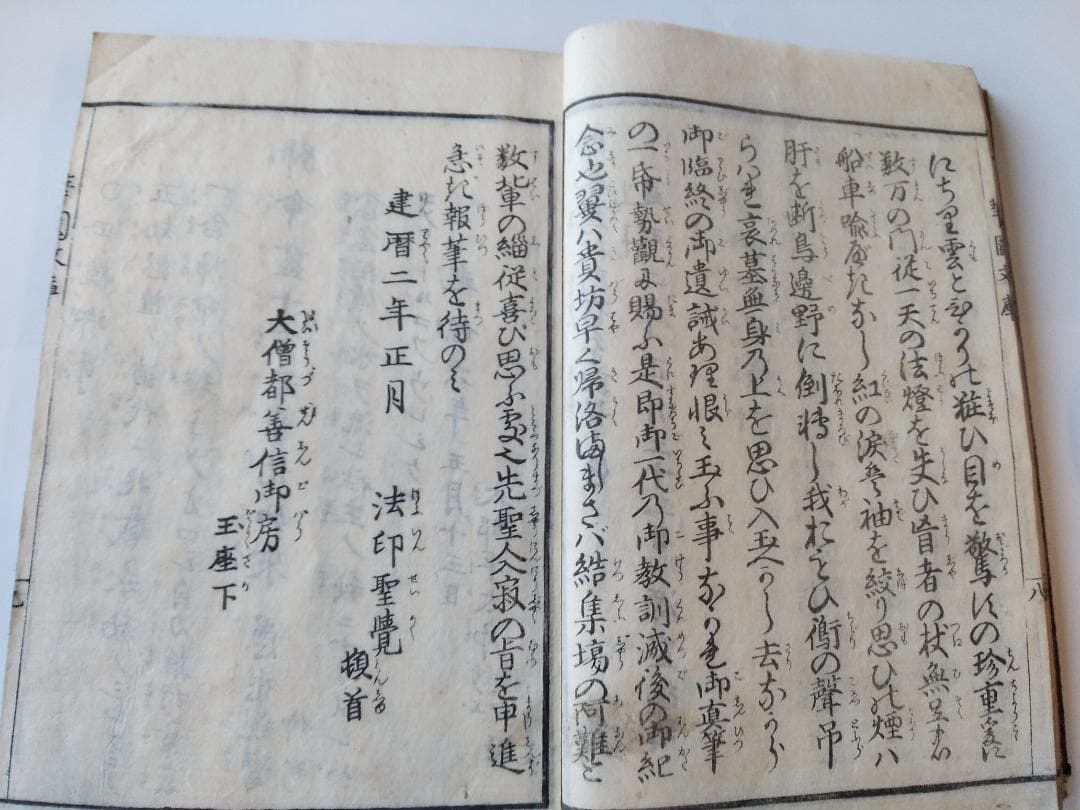 にちり雲とひかりの粧ひ目を驚すの珍重爰に
数万の門従一天の法燈を失ひ盲者の杖無
船車喩なし紅の涙袖を絞り思ひの煙ハ
肝を断鳥邊野に倒轉し我おもひ衛の聲吊
らハれ哀墓無身乃上を思ひ入玉へかし去ながら
御臨終の御遺誡あり恨ミ玉ふ事なかれ御真筆
の一帋勢觀に賜ふ是即御一代乃御教訓滅後の御紀
念也翼ハ貴坊早く帰洛ましまさバ結集場の阿難と
数輩の緇従喜び思ふ処也先聖人入寂の旨を申進
急ぎ報筆を待のミ
建暦二年正月
法印聖覺
頓首
大僧都善信御房
玉座下
八